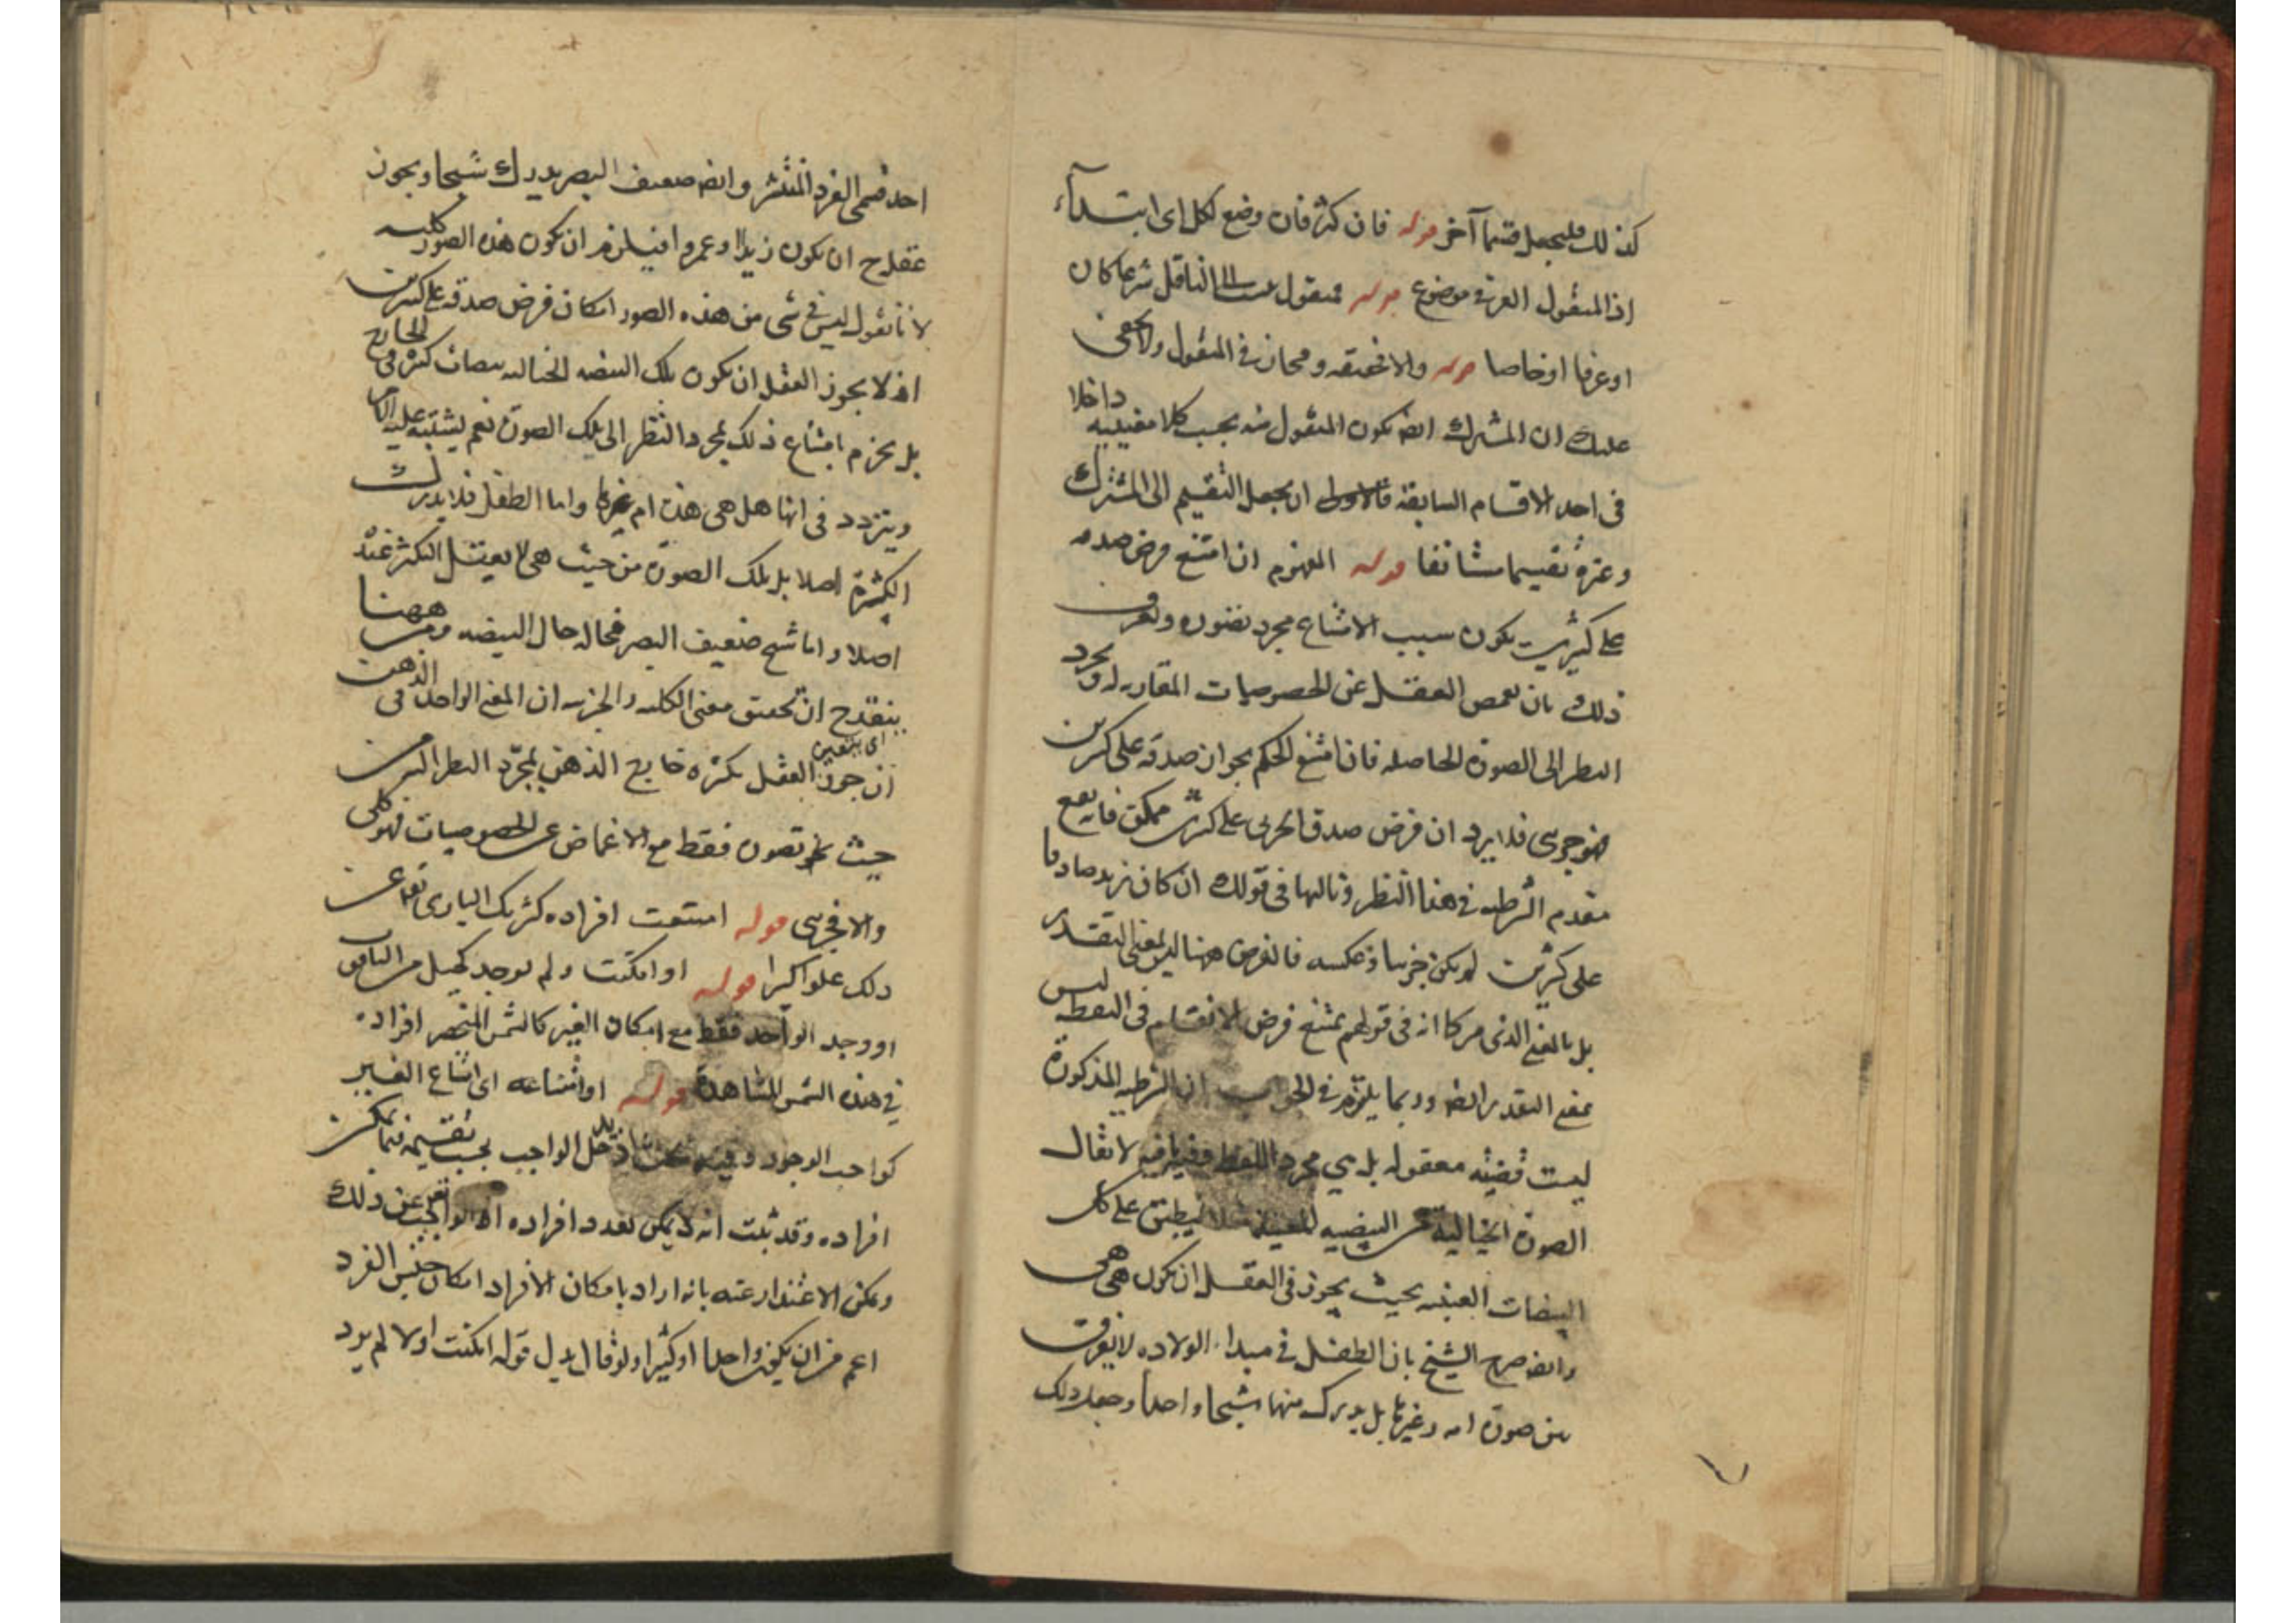 كذلك فليجعل قسما آخر قوله فان كثر فان وضع لكل اى ابتداء
اذ المنقول العرفى موضوع قوله منقول ينسب الى الناقل شرعيا كان
او عرفيا او خاصا قوله والا فحقيقة ومجاز فى المنقول ولا يخفى
عليك ان المشترك ايضا يكون المنقول منه بحسب كلا معنييه داخلا
فى احد الاقسام السابقة فالاولى ان يجعل التقسيم الى المشترك
وغيره تقسيما مستانفا قوله المفهوم ان امتنع فرض صدقه
على كثيرين يكون سبب الامتناع مجرد تصوره ويعرف
ذلك بان يغمض العقل عن الخصوصيات المقارنة له ويجرد
النظر الى الصورة الحاصلة فان امتنع الحكم بجواز صدقه على كثيرين
فهو جزئى فلا يرد ان فرض صدق الجزئى على كثيرين ممكن فانه يقع
مقدم الشرطية فى هذا النظر وتاليها فى قولك ان كان زيد صادقا
على كثيرين لم يكن جزئيا وعكسه فالفرض ههنا ليس بمعنى التقدير
بل بالمعنى الذى مر كما انه فى قولهم يمتنع فرض الانقسام فى النقطة ليس
بمعنى التقدير ايضا وربما يلتزم فى الجواب ان الشرطية المذكورة
ليست قضية معقولة بل هى مجرد اللفظ وفيه ما فيه لا يقال
الصورة الخيالية من البيضة المعينة مثلا ينطبق على كل
البيضات العينية بحيث يجوز فى العقل ان يكون هى هى
وايضا صرح الشيخ بان الطفل فى مبداء الولادة لا يفرق
بين صورة امه وغيرها بل يدرك منهما شبحا واحدا وجعل ذلك
احد قسمى الفرد المنتشر وايضا ضعيف البصر يدرك شبحا ويجوز
عقله ح ان يكون زيدا وعمروا فيلزم ان يكون هذه الصور كلية
لانا نقول ليس فى شى من هذه الصور امكان فرض صدقه على كثيرين
اذ لا يجوز العقل ان يكون تلك البيضة الخيالية بيضات كثيرة فى الخارج
بل يجزم بامتناع ذلك بمجرد النظر الى تلك الصورة نعم يشتبه عليه الامر
ويتردد فى انها هل هى هذه ام غيرها واما الطفل فلا يدرك
الكثرة اصلا بل تلك الصورة من حيث هى لا يعقل التكثر عنده
اصلا واما شبح ضعيف البصر فحاله حال البيضة ومن ههنا
ينقدح ان تحقيق معنى الكلية والجزئية ان المعنى الواحد فى الذهن
اى يتعين
ان جوز العقل تكثره خارج الذهن بمجرد النظر اليه من
حيث هو تصوره فقط مع الاغماض عن الخصوصيات فهو كلى
والا فجزئى قوله امتنعت افراده كشريك البارى تعالى عن
ذلك علوا كبيرا قوله او امكنت ولم يوجد كجبل من الياقوت
او وجد الواحد فقط مع امكان الغير كالشمس المنحصر افراده
فى هذه الشمس المشاهدة قوله او امتناعه اى امتناع الغير
كواجب الوجود وفيه بحث اذ يدخل الواجب بحسب تقسيمه فيما يمكن
افراده وقد ثبت انه لا يمكن تعدد افراده اذ الواجب عن ذلك
ويمكن الاعتذار عنه بانه اراد بامكان الافراد امكان جنس الفرد
اعم من ان يكون واحدا او كثيرا ولو قال بدل قوله امكنت اولا لم يرد